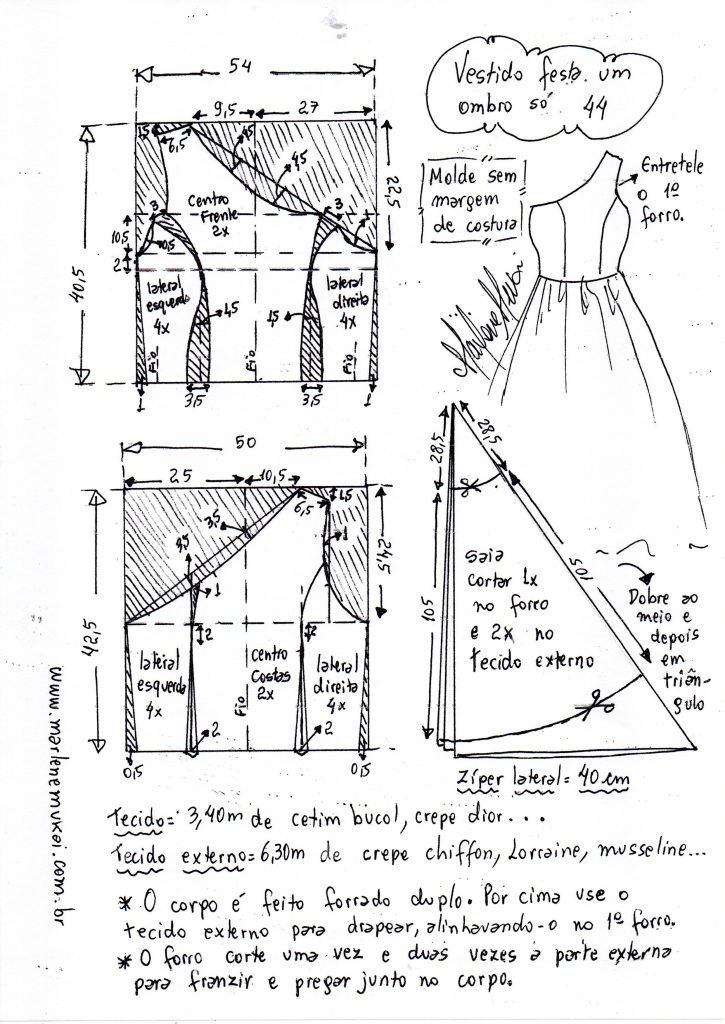 Vestido festa um
ombro só 44
54
9,5
27
1,5
6,5
4,5
4,5
22,5
Centro
Frente
2x
3
3
10,5
0,5
2
40,5
lateral
esquerda
4x
lateral
direita
4x
1,5
1,5
Fio
Fio
Fio
1
3,5
3,5
1
Molde sem
margem
de costura
Entretele
o 1º
forro.
50
25
10,5
3,5
6,5
1,5
1
1
24,5
2
2
42,5
lateral
esquerda
4x
Centro
Costas
2x
lateral
direita
4x
Fio
2
2
0,5
0,5
28,5
28,5
105
105
saia
cortar 1x
no forro
e 2x no
tecido externo
Dobre ao
meio e
depois
em
triân-
gulo
Zíper lateral= 40 cm
www.marlenemukai.com.br
Tecido= 3,40m de cetim bucol, crepe dior...
Tecido externo= 6,30m de crepe chiffon, Lorraine, musseline...
* O corpo é feito forrado duplo. Por cima use o
tecido externo para drapear, alinhavando-o no 1º forro.
* O forro corte uma vez e duas vezes a parte externa
para franzir e pregar junto no corpo.